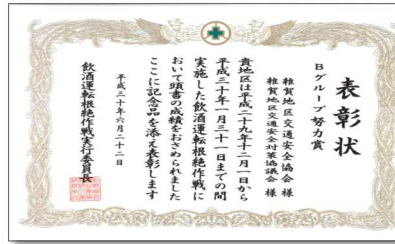 表彰状
Bグループ 努力賞
雑賀地区交通安全協会 様
雑賀地区交通安全対策協議会 様
貴地区は平成二十九年十二月一日から
平成三十年一月三十一日までの間
実施した飲酒運転根絶作戦に
おいて頭書の成績をおさめられました
ここに記念品を添え表彰します
平成三十年六月二十二日
飲酒運転根絶作戦実行委員長